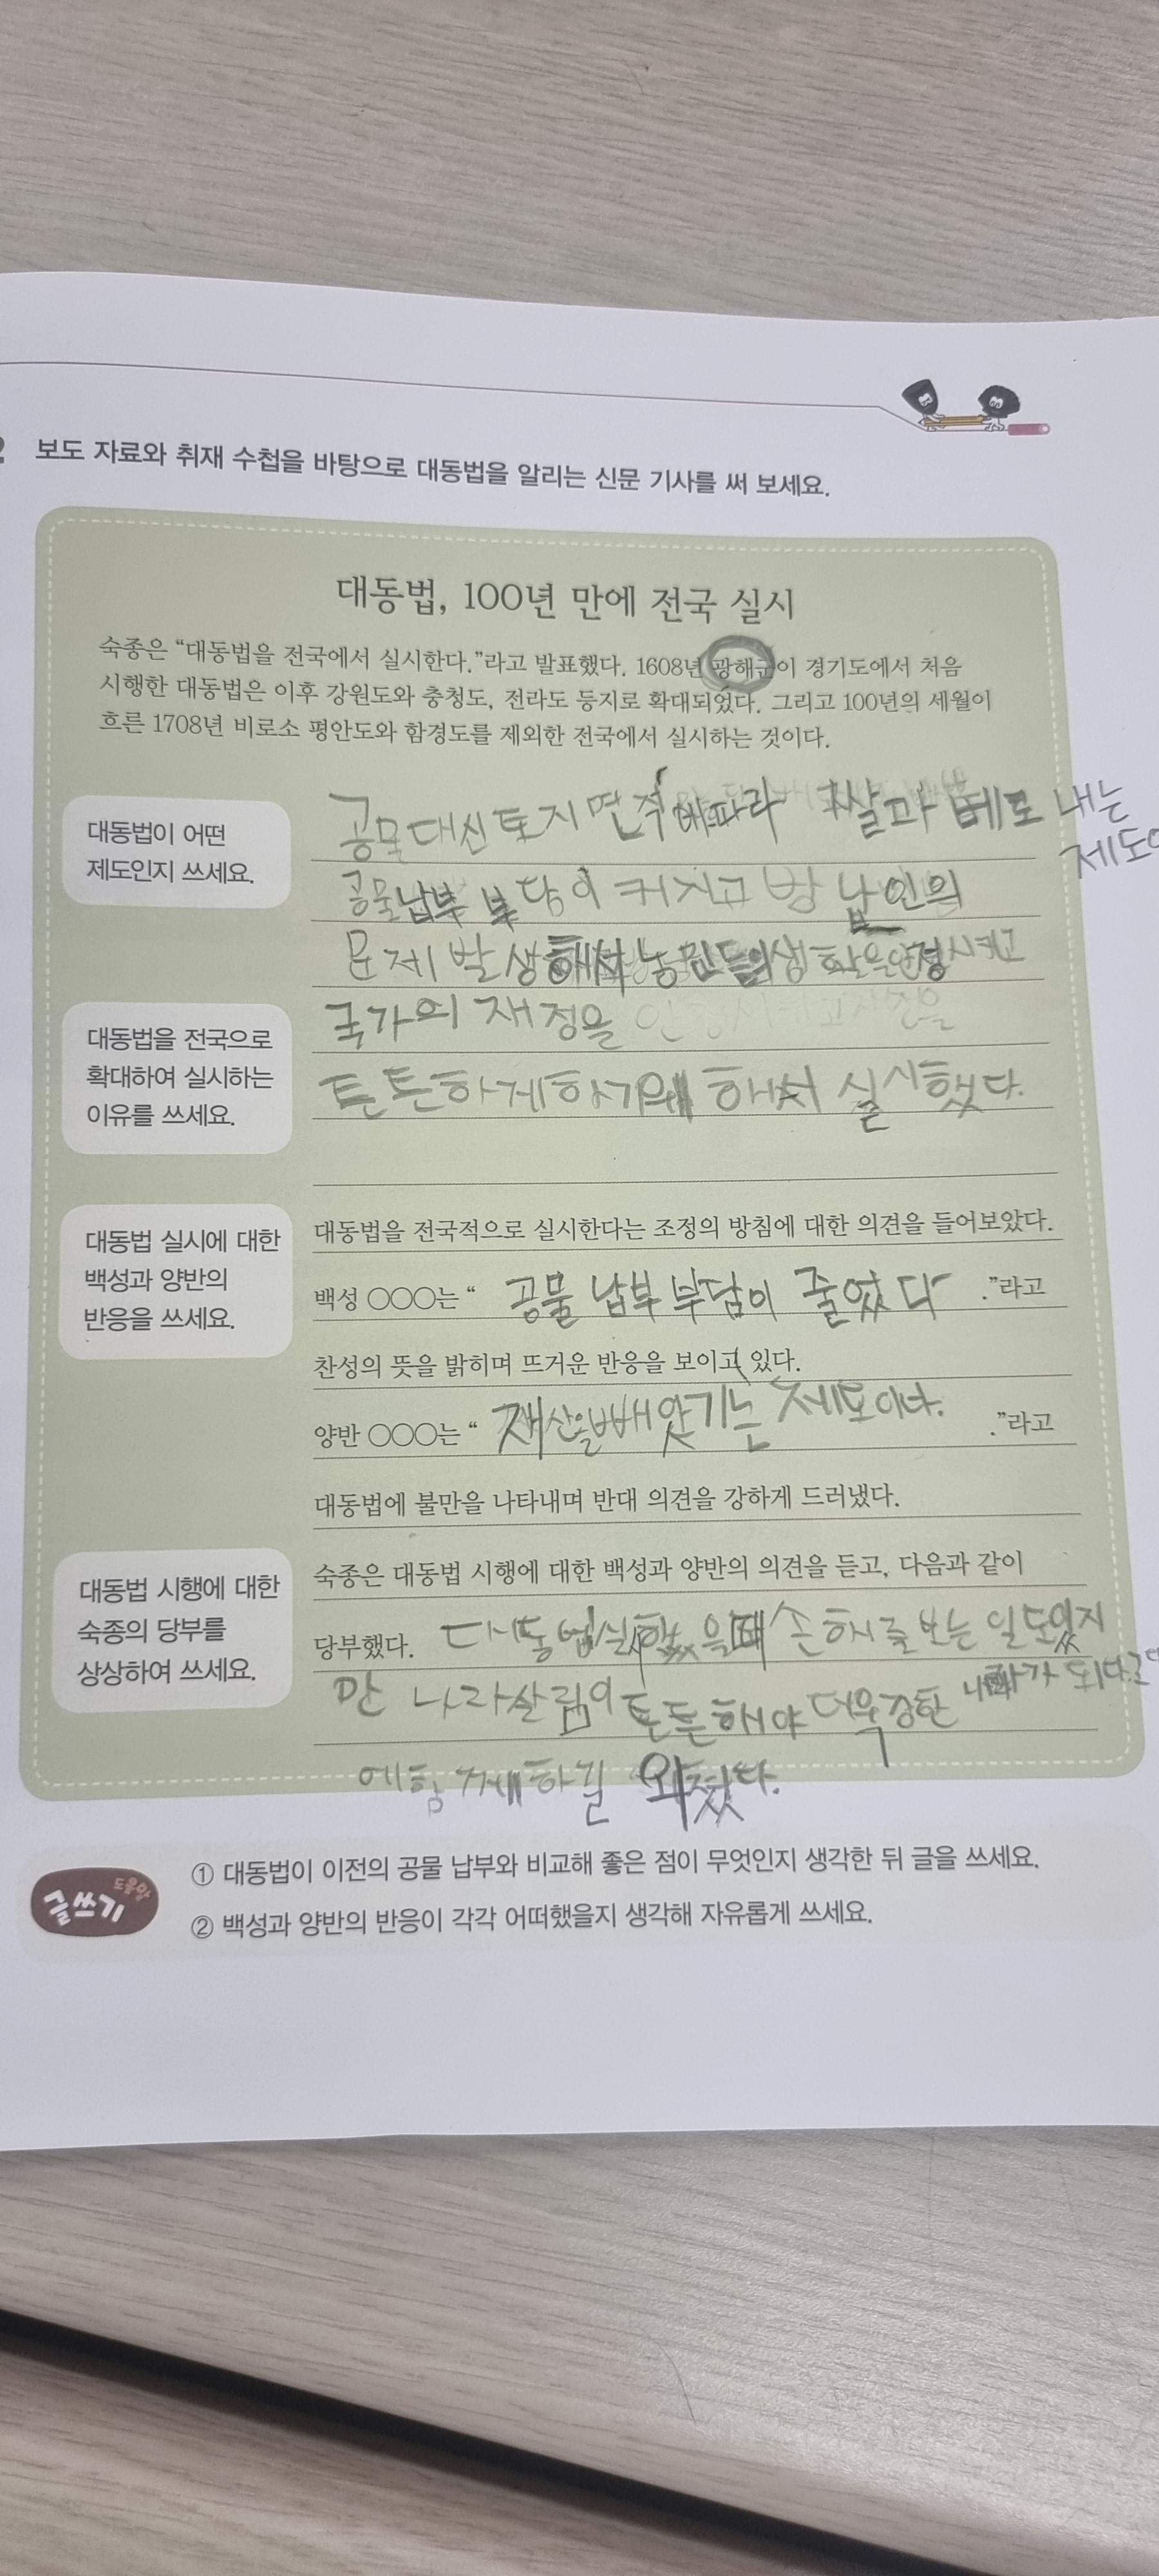 2 보도 자료와 취재 수첩을 바탕으로 대동법을 알리는 신문 기사를 써 보세요.
대동법, 100년 만에 전국 실시
숙종은 “대동법을 전국에서 실시한다.”라고 발표했다. 1608년 광해군이 경기도에서 처음
시행한 대동법은 이후 강원도와 충청도, 전라도 등지로 확대되었다. 그리고 100년의 세월이
흐른 1708년 비로소 평안도와 함경도를 제외한 전국에서 실시하는 것이다.
대동법이 어떤
제도인지 쓰세요.
공물대신 토지 면적에 따라 쌀과 베로 내는
제도
공물납부 부담이 커지고 방납인의
문제발생해서 농민들의 생활을 안정시키고
대동법을 전국으로
확대하여 실시하는
이유를 쓰세요.
국가의 재정을
튼튼하게하기위해서 실시했다.
대동법 실시에 대한
백성과 양반의
반응을 쓰세요.
대동법을 전국적으로 실시한다는 조정의 방침에 대한 의견을 들어보았다.
백성 ○○○는 “ 공물 납부 부담이 줄었다 .”라고
찬성의 뜻을 밝히며 뜨거운 반응을 보이고 있다.
양반 ○○○는 “ 재산을빼앗기는 제도이다. .”라고
대동법에 불만을 나타내며 반대 의견을 강하게 드러냈다.
대동법 시행에 대한
숙종의 당부를
상상하여 쓰세요.
숙종은 대동법 시행에 대한 백성과 양반의 의견을 듣고, 다음과 같이
당부했다. 대동법실시했을때 손해를 보는 일도있지
만 나라살림이 튼튼해야 더욱강한 나라가 되다
하길
글쓰기 도움말
① 대동법이 이전의 공물 납부와 비교해 좋은 점이 무엇인지 생각한 뒤 글을 쓰세요.
② 백성과 양반의 반응이 각각 어떠했을지 생각해 자유롭게 쓰세요.